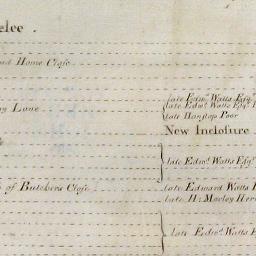 elee .
Home Close
late Edwd. Watts Esqr.
late Edwd. Watts Esqr.
Lane
late Hanslop Poor
New Inclosure
late Edwd. Watts Esqr.
of Butchers Close
late Edward Watts
late H: Morley
late Edwd. Watts